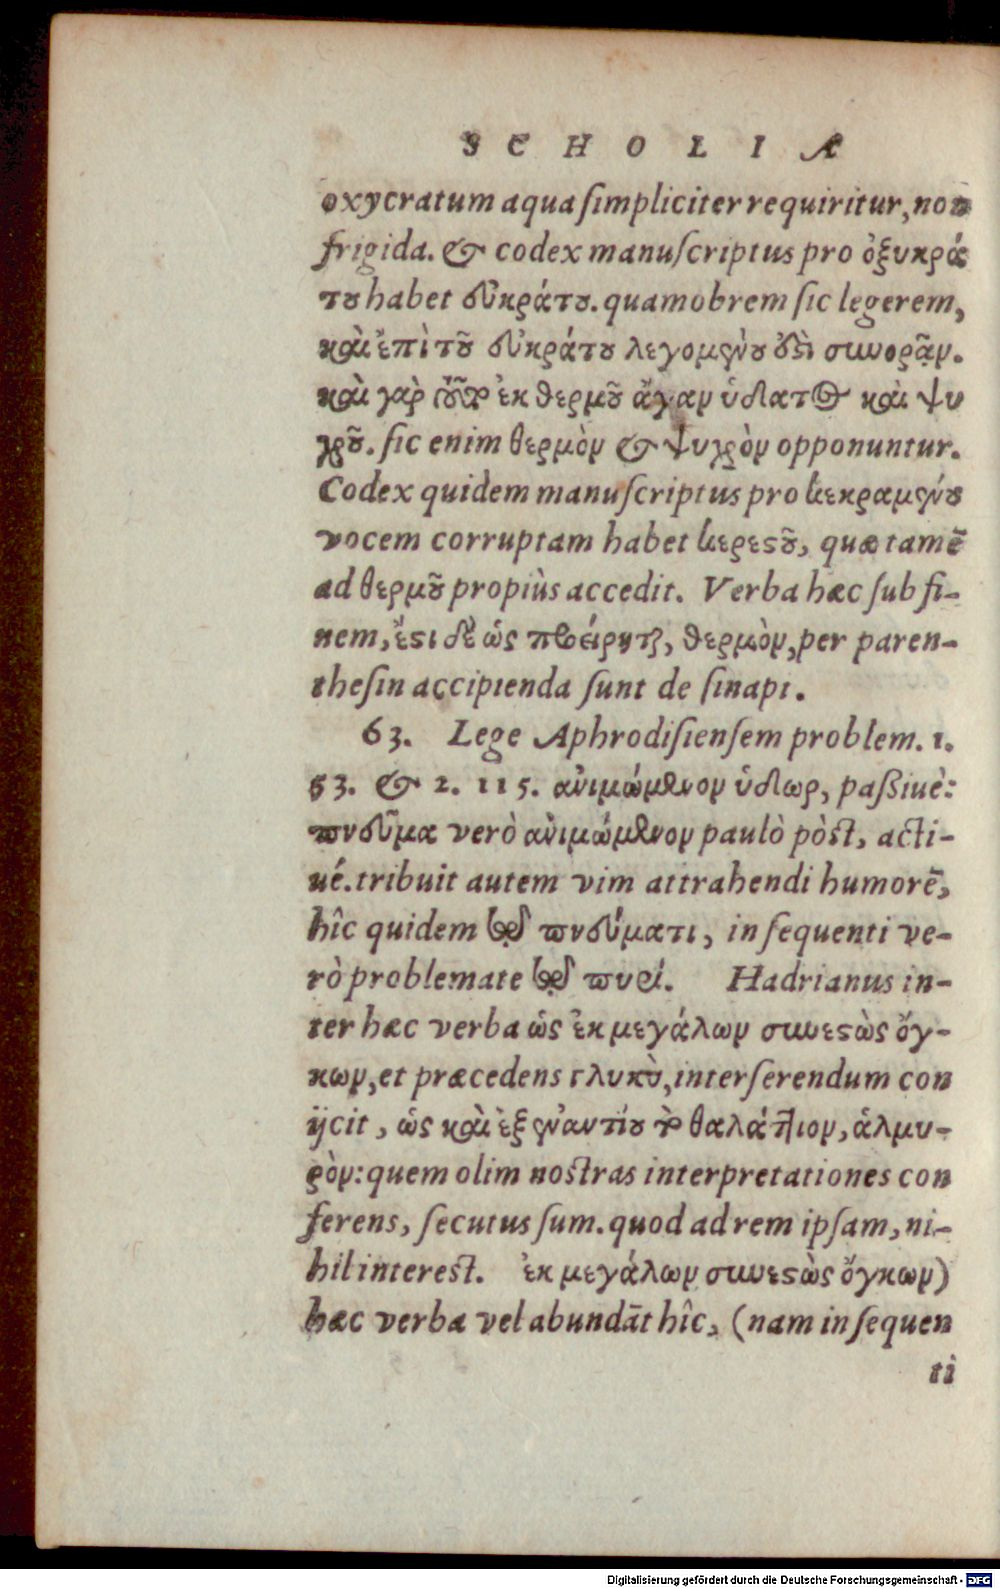 SCHOLIA
oxycratum aqua ſimpliciter requiritur, non
frigida. & codex manuſcriptus pro ὀξυκρά
του habet εὐκράτου. quamobrem ſic legerem,
καὶ ἐπὶ τοῦ εὐκράτου λεγομένου δεῖ συνορᾷν.
καὶ γὰρ ἐκ θερμοῦ ἄγαν ὕδατος καὶ ψυ
χροῦ. ſic enim θερμὸν & ψυχρὸν opponuntur.
Codex quidem manuſcriptus pro κεκραμένου
vocem corruptam habet κερεστοῦ, quæ tamē
ad θερμοῦ propiùs accedit. Verba hæc ſub fi-
nem, ἔστι δὲ ὡς προείρηται, θερμὸν, per paren-
theſin accipienda ſunt de ſinapi.
63. Lege Aphrodiſienſem problem. 1.
53. & 2. 115. ἀνιμώμενον ὕδωρ, paßiuè:
πνεῦμα verò ἀνιμώμενον paulò pòst, acti-
ué. tribuit autem vim attrahendi humorē,
hîc quidem τῷ πνεύματι, in ſequenti ve-
rò problemate τῷ πυρί. Hadrianus in-
ter hæc verba ὡς ἐκ μεγάλων συνεστὼς ὄγ-
κων, et præcedens γλυκὺ, interſerendum con
ijcit, ὡς καὶ ἐξ ἐναντίου τὸ θαλάττιον, ἁλμυ-
ρὸν: quem olim nostras interpretationes con
ferens, ſecutus ſum. quod ad rem ipſam, ni-
hil interest. ἐκ μεγάλων συνεστὼς ὄγκων)
hæc verba vel abundāt hîc, (nam in ſequen
ti
Digitalisierung gefördert durch die Deutsche Forschungsgemeinschaft - DFG